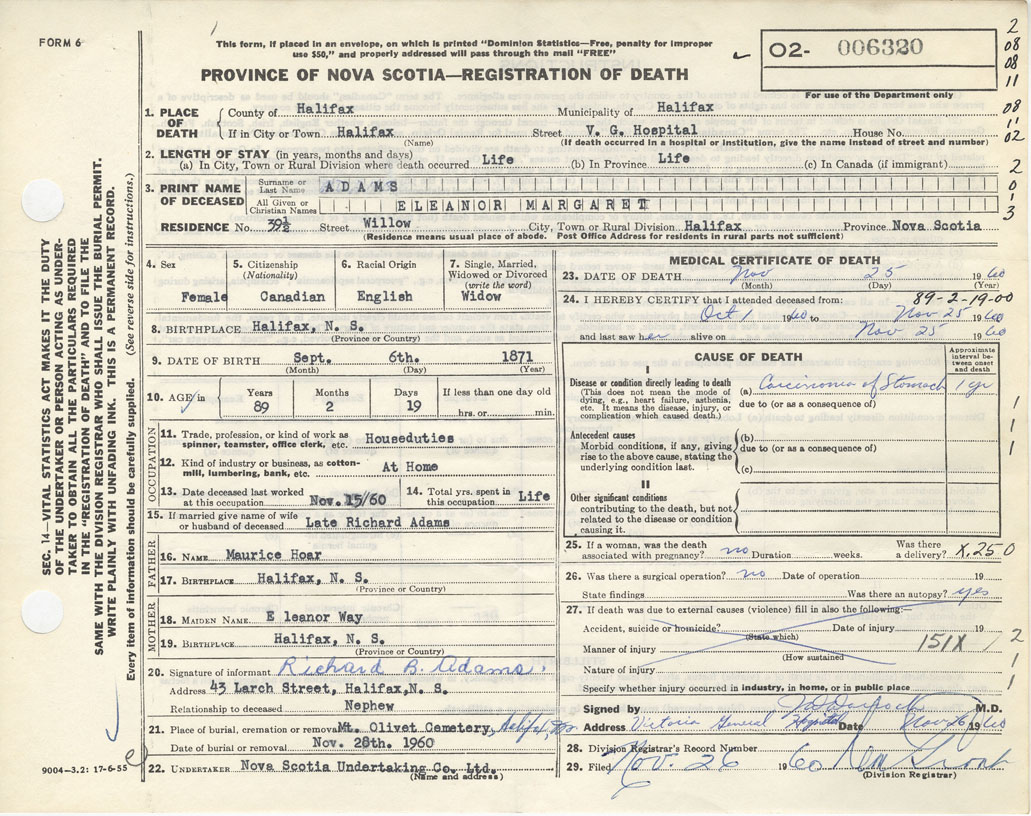 FORM 6
This form, if placed in an envelope, on which is printed "Dominion Statistics—Free, penalty for improper
use $50," and properly addressed will pass through the mail "FREE"
PROVINCE OF NOVA SCOTIA—REGISTRATION OF DEATH
O2- 006320
For use of the Department only
2
08
08
11
08
11
02
2
0
1
3
1. PLACE OF DEATH
County of Halifax Municipality of Halifax
If in City or Town Halifax Street V. G. Hospital House No.
(Name) (If death occurred in a hospital or institution, give the name instead of street and number)
2. LENGTH OF STAY (in years, months and days)
(a) In City, Town or Rural Division where death occurred Life (b) In Province Life (c) In Canada (if immigrant)
3. PRINT NAME OF DECEASED
Surname or Last Name ADAMS
All Given or Christian Names ELEANOR MARGARET
RESIDENCE No. 39½ Street Willow City, Town or Rural Division Halifax Province Nova Scotia
(Residence means usual place of abode. Post Office Address for residents in rural parts not sufficient)
4. Sex Female
5. Citizenship (Nationality) Canadian
6. Racial Origin English
7. Single, Married, Widowed or Divorced (write the word) Widow
8. BIRTHPLACE Halifax, N. S.
(Province or Country)
9. DATE OF BIRTH Sept. 6th. 1871
(Month) (Day) (Year)
10. AGE in Years 89 Months 2 Days 19 If less than one day old hrs. or min.
OCCUPATION
11. Trade, profession, or kind of work as spinner, teamster, office clerk, etc. Houseduties
12. Kind of industry or business, as cotton-mill, lumbering, bank, etc. At Home
13. Date deceased last worked at this occupation Nov. 15/60
14. Total yrs. spent in this occupation Life
15. If married give name of wife or husband of deceased Late Richard Adams
FATHER
16. NAME Maurice Hoar
17. BIRTHPLACE Halifax, N. S.
(Province or Country)
MOTHER
18. MAIDEN NAME E leanor Way
19. BIRTHPLACE Halifax, N. S.
(Province or Country)
20. Signature of informant Richard B. Adams.
Address 43 Larch Street, Halifax,N. S.
Relationship to deceased Nephew
21. Place of burial, cremation or removal Mt. Olivet Cemetery, Halifax
Date of burial or removal Nov. 28th. 1960
22. UNDERTAKER Nova Scotia Undertaking Co. Ltd.
(Name and address)
MEDICAL CERTIFICATE OF DEATH
23. DATE OF DEATH Nov 25 1960
(Month) (Day) (Year)
24. I HEREBY CERTIFY that I attended deceased from: 89-2-19-00
Oct 1 1960 to Nov 25 1960
and last saw her alive on Nov 25 1960
CAUSE OF DEATH
Approximate interval between onset and death
I
Disease or condition directly leading to death (a) Carcinoma of Stomach 1 yr
(This does not mean the mode of dying, e.g., heart failure, asthenia, etc. It means the disease, injury, or complication which caused death.)
due to (or as a consequence of)
Antecedent causes (b)
Morbid conditions, if any, giving rise to the above cause, stating the underlying condition last.
due to (or as a consequence of)
(c)
II
Other significant conditions
contributing to the death, but not related to the disease or condition causing it.
1
1
1
25. If a woman, was the death associated with pregnancy? no Duration weeks. Was there a delivery? X.250
26. Was there a surgical operation? no Date of operation 19
State findings Was there an autopsy? yes
27. If death was due to external causes (violence) fill in also the following:—
Accident, suicide or homicide? Date of injury 19
(State which)
Manner of injury 151X
(How sustained)
Nature of injury
Specify whether injury occurred in industry, in home, or in public place
2
1
1
Signed by M.D.
Address Victoria General Hospital Date Nov 26 1960
28. Division Registrar's Record Number
29. Filed Nov. 26 1960
(Division Registrar)
SEC. 14—VITAL STATISTICS ACT MAKES IT THE DUTY
OF THE UNDERTAKER OR PERSON ACTING AS UNDER-
TAKER TO OBTAIN ALL THE PARTICULARS REQUIRED
IN THE "REGISTRATION OF DEATH" AND TO FILE THE
SAME WITH THE DIVISION REGISTRAR WHO SHALL ISSUE THE BURIAL PERMIT.
WRITE PLAINLY WITH UNFADING INK. THIS IS A PERMANENT RECORD.
Every item of information should be carefully supplied. (See reverse side for instructions.)
9004—3.2: 17-6-55